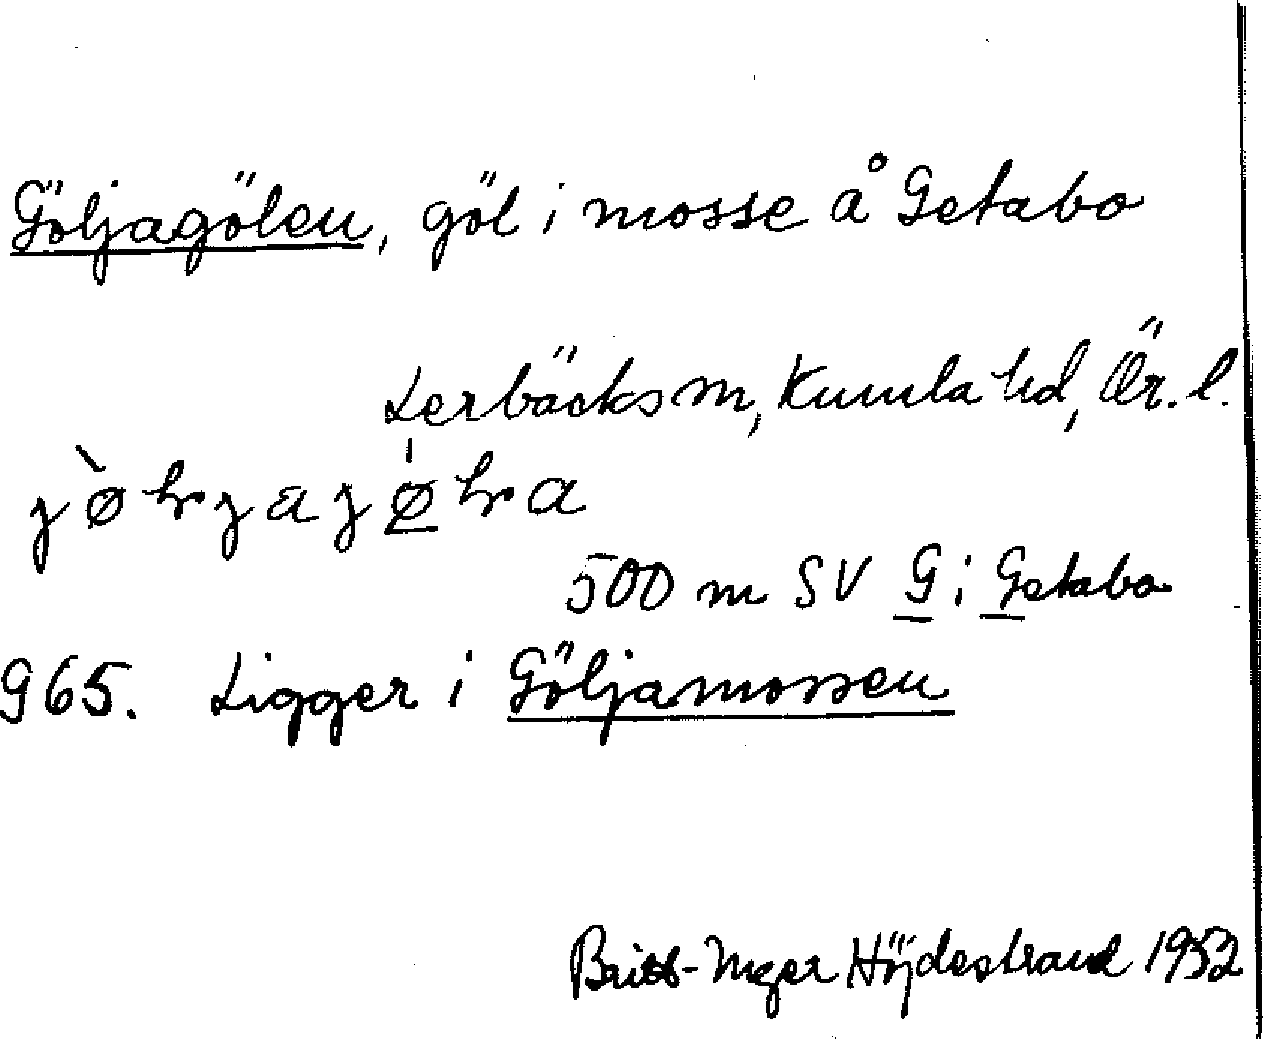 Göljagölen, göl i mosse å Getabo
Lerbäcks sn, Kumla hd, Ör. l.
500 m SV G i Getabo
965. Ligger i Göljamossen
Britt-Inger Höjdestrand 1952